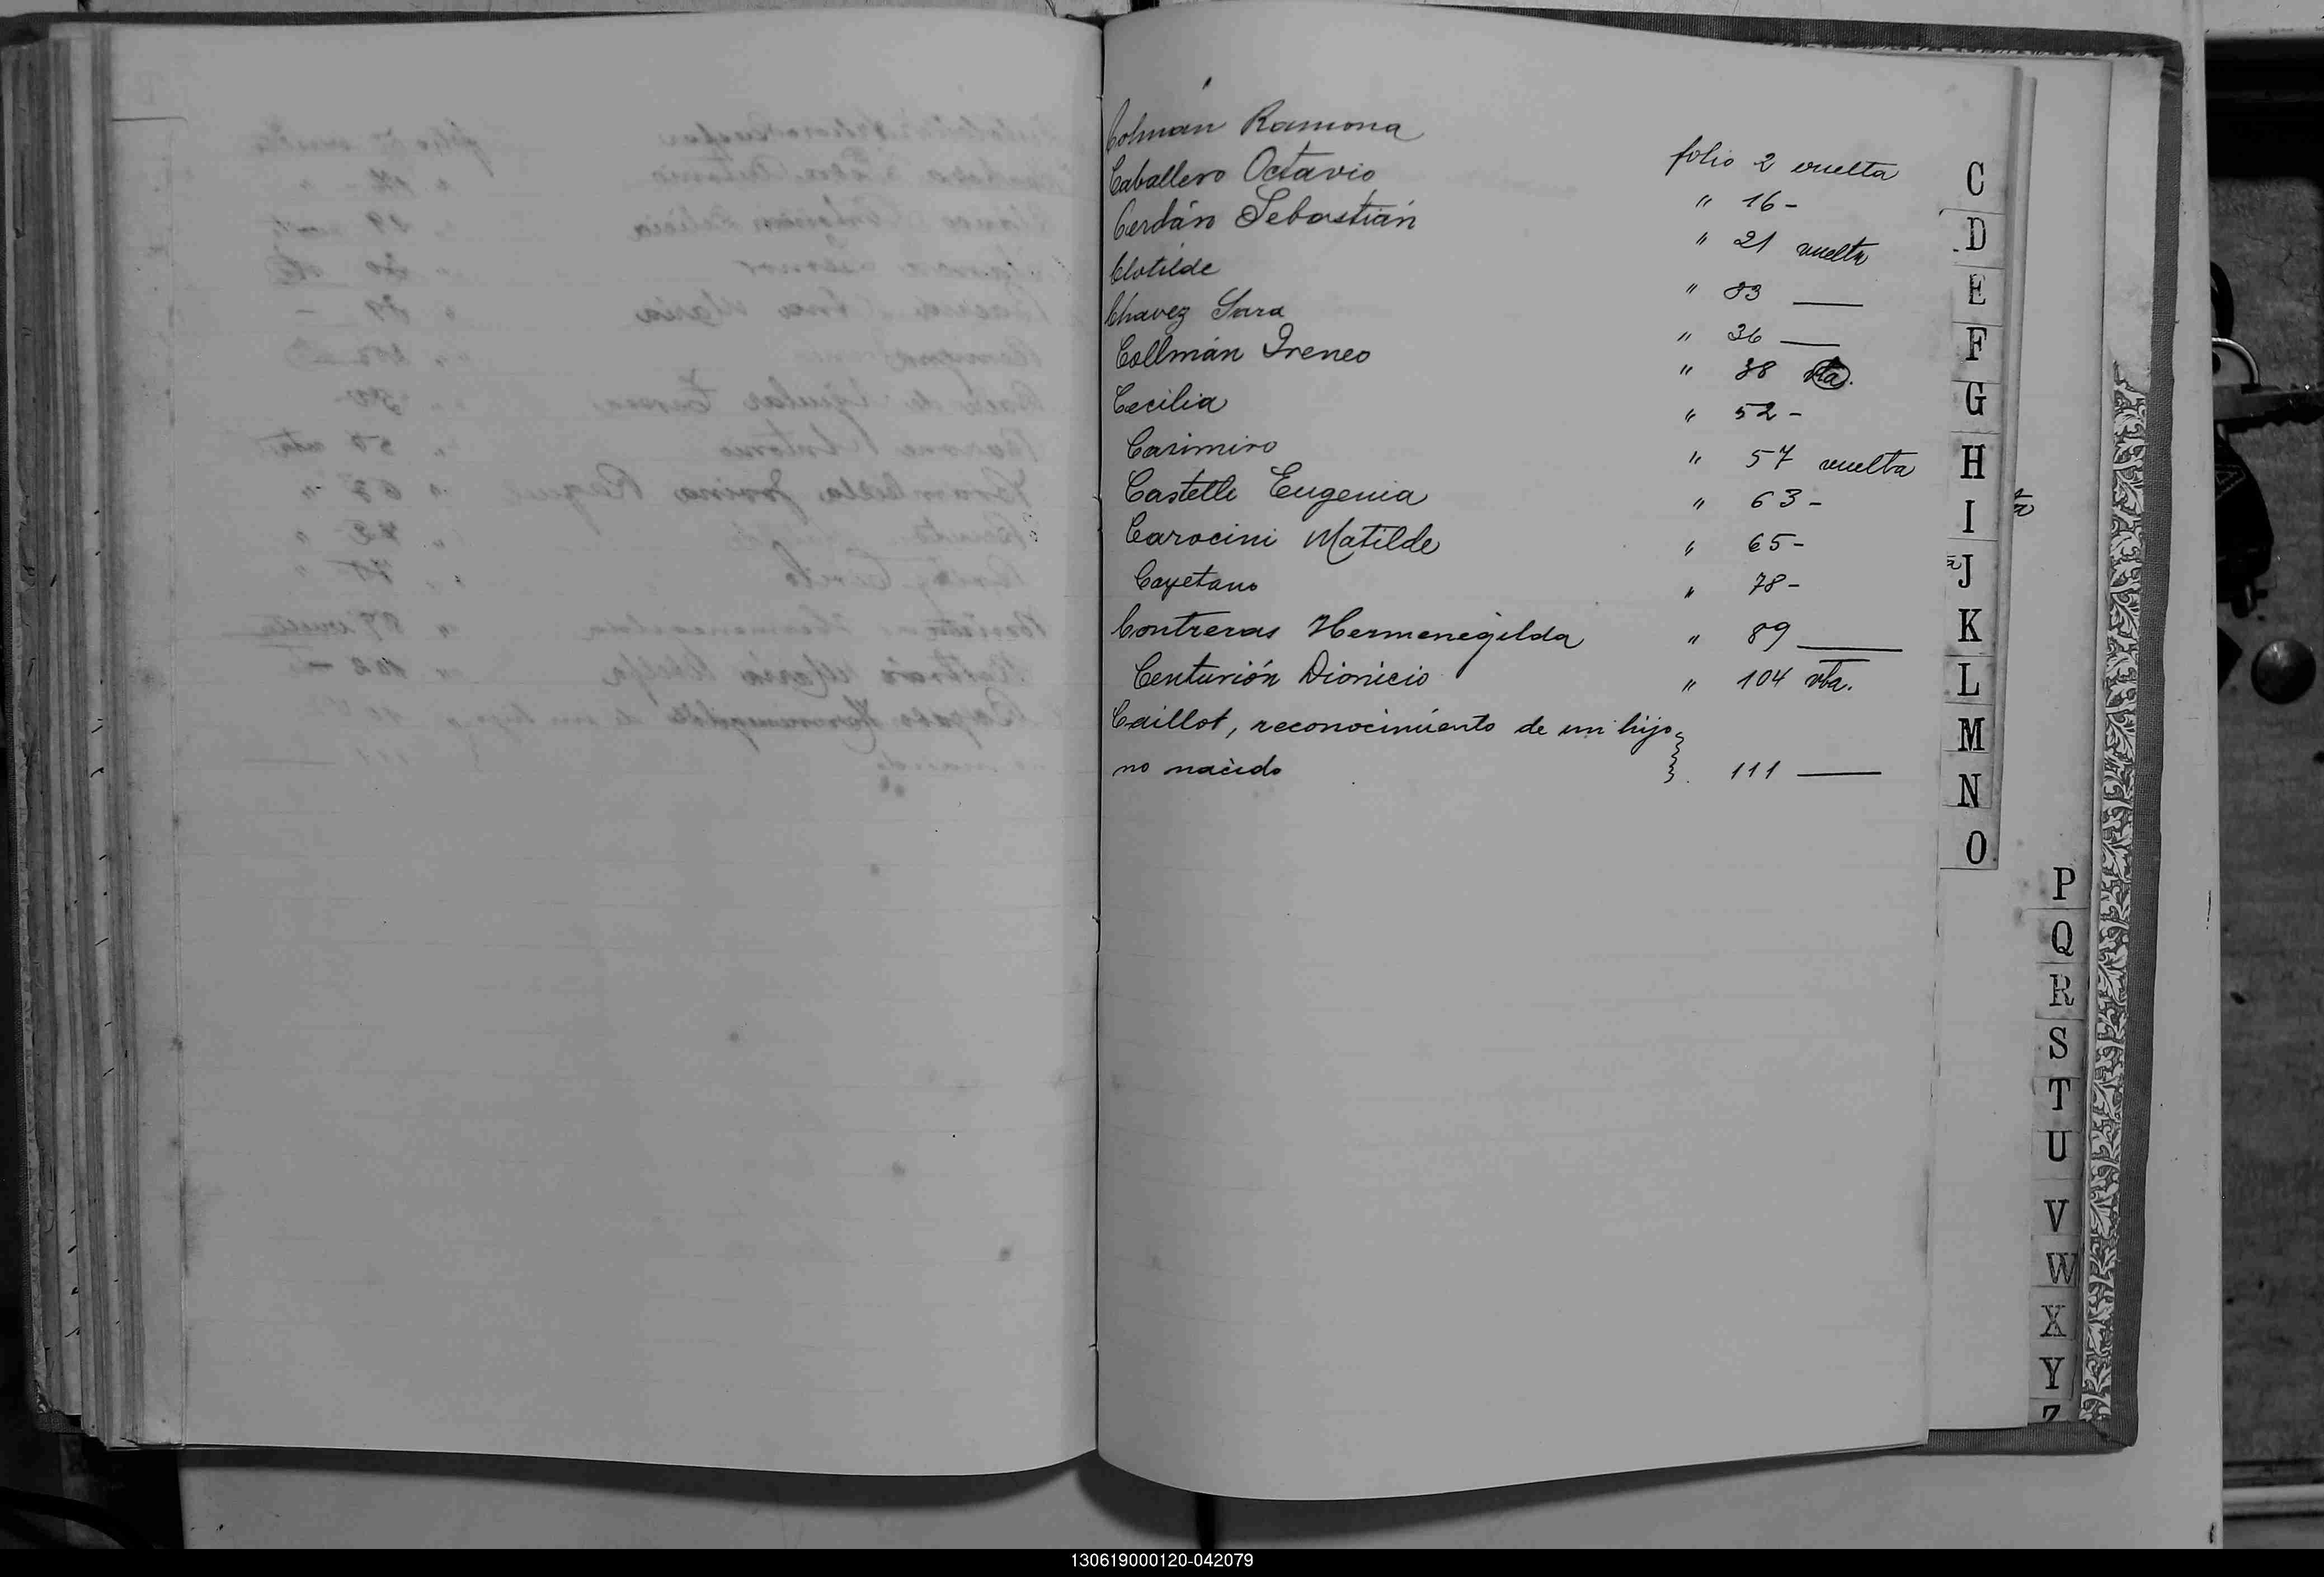 Colmán Ramona folio 2 vuelta
Caballero Octavio " 16 -
Cerdán Sebastián " 21 vuelta
Clotilde " 33 —
Chavez Sara " 36 —
Collmán Ireneo " 38 vta.
Cecilia " 52 -
Casimiro " 57 vuelta
Castelli Eugenia " 63 -
Carocini Matilde " 65 -
Cayetano " 78 -
Contreras Hermenegilda " 89 —
Centurión Dionicio " 104 vta.
Caillot, reconocimiento de un hijo
no nacido 111 —
C
D
E
F
G
H
I
J
K
L
M
N
O
P
Q
R
S
T
U
V
W
X
Y
Z
130619000120-042079